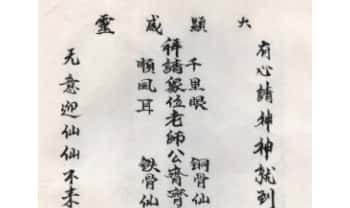 大顯威靈
有心請神神就到
千里眼 銅骨仙
拜請衆位老師公齊齊
順風耳 鉄骨仙
无意迎仙仙不来